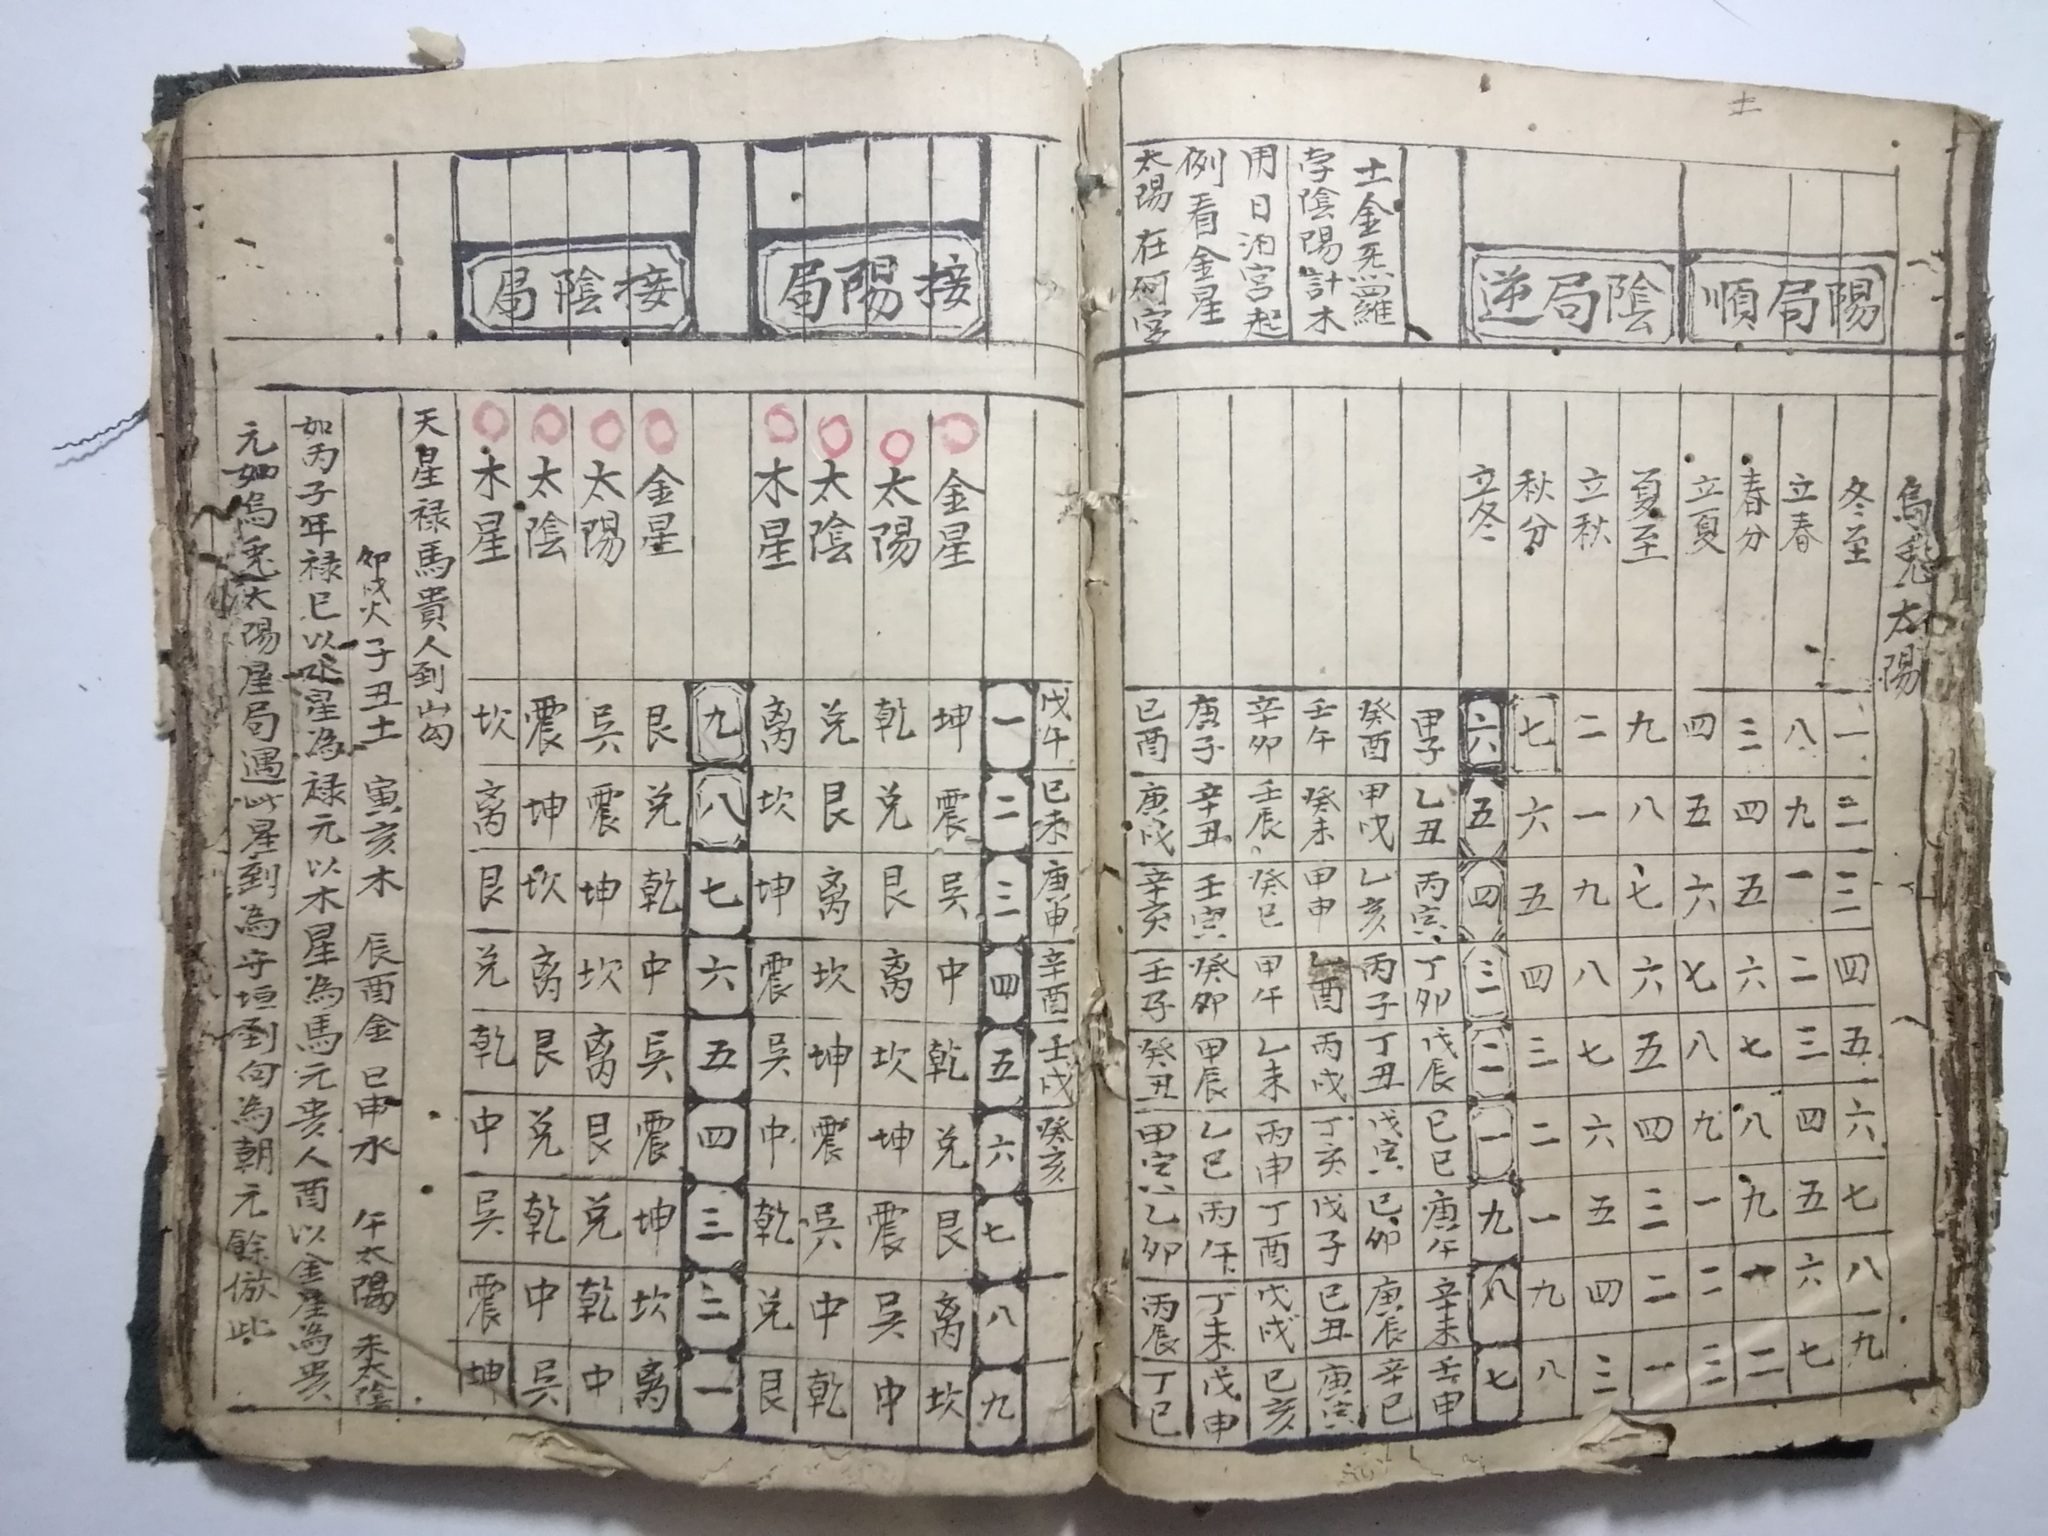 陽局順
陰局逆
土金炁羅
孛陰陽計木
用日泊宮起
例看金星
太陽在何宮
烏兔太陽
冬至 一 二 三 四 五 六 七 八 九
立春 八 九 一 二 三 四 五 六 七
春分 三 四 五 六 七 八 九 一 二
立夏 四 五 六 七 八 九 一 二 三
夏至 九 八 七 六 五 四 三 二 一
立秋 二 一 九 八 七 六 五 四 三
秋分 七 六 五 四 三 二 一 九 八
立冬 六 五 四 三 二 一 九 八 七
甲子 乙丑 丙寅 丁卯 戊辰 己巳 庚午 辛未 壬申
癸酉 甲戌 乙亥 丙子 丁丑 戊寅 己卯 庚辰 辛巳
壬午 癸未 甲申 乙酉 丙戌 丁亥 戊子 己丑 庚寅
辛卯 壬辰 癸巳 甲午 乙未 丙申 丁酉 戊戌 己亥
庚子 辛丑 壬寅 癸卯 甲辰 乙巳 丙午 丁未 戊申
己酉 庚戌 辛亥 壬子 癸丑 甲寅 乙卯 丙辰 丁巳
接陽局
接陰局
戊午 己未 庚申 辛酉 壬戌 癸亥
一 二 三 四 五 六 七 八 九
金星 坤 震 吳 中 乾 兌 艮 离 坎
太陽 乾 兌 艮 离 坎 坤 震 吳 中
太陰 兌 艮 离 坎 坤 震 吳 中 乾
木星 离 坎 坤 震 吳 中 乾 兌 艮
九 八 七 六 五 四 三 二 一
金星 艮 兌 乾 中 吳 震 坤 坎 离
太陽 吳 震 坤 坎 离 艮 兌 乾 中
太陰 震 坤 坎 离 艮 兌 乾 中 吳
木星 坎 离 艮 兌 乾 中 吳 震 坤
天星祿馬貴人到山向
卯戌火 子丑土 寅亥木 辰酉金 巳申水 午太陽 未太陰
如丙子年祿巳以水星為祿元以木星為馬元貴人酉以金星為貴
元如烏兔太陽星局遇此星到為守垣到向為朝元餘倣此